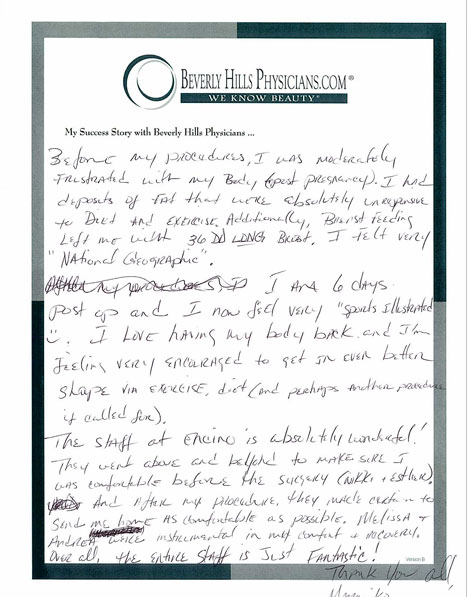 BEVERLY HILLS PHYSICIANS.COM®
WE KNOW BEAUTY®
My Success Story with Beverly Hills Physicians ...
Before my procedures, I was moderately
frustrated with my body (post pregnancy). I had
deposits of fat that were absolutely unresponsive
to Diet and exercise. Additionally, Breast Feeding
left me with 36 DD LONG Breast. I felt very
"National Geographic".
After my procedures I am 6 days
post op and I now feel very "sports illustrated"
I LOVE having my body back and I am
feeling very encouraged to get in even better
shape via exercise, diet (and perhaps another procedure
if called for).
The staff at Encino is absolutely wonderful!
They went above and beyond to make sure I
was comfortable before the surgery (Nikki + Esther).
And after my procedure, they made certain to
send me home as comfortable as possible. Melissa +
Andrea were instrumental in my comfort + recovery.
Over all, the entire staff is Just Fantastic!
Version B
Thank you all,